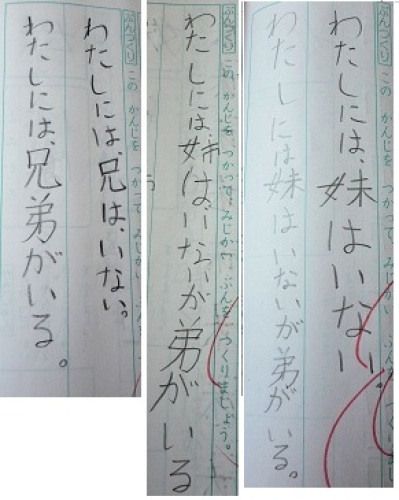 ぶんづくり この かんじを つかって、みじかい ぶんを
わたしには、兄は、いない。
わたしには、兄弟がいる。
ぶんづくり この かんじを つかって、みじかい ぶんを つくりましょう。
わたしには、姉はいないが弟がいる
ぶんづくり この かんじを つかって、みじかい ぶん つくりまし
わたしには、妹はいない。
わたしには妹はいないが弟がいる。